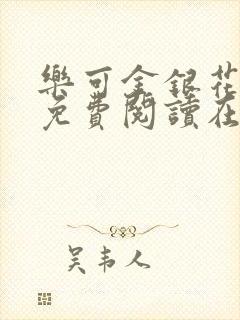 樂可金銀花
免費閱讀在
吴韦人